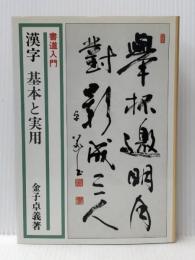 書道入門
漢字 基本と実用
金子卓義著
舉杯邀明月
對影成三人
卓義書